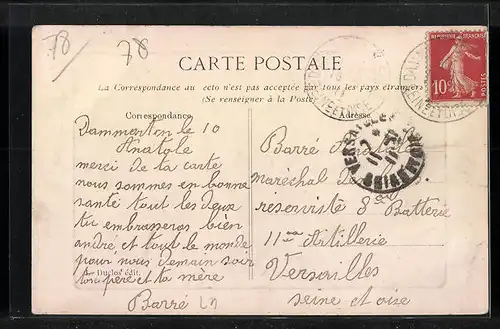 78
78
CARTE POSTALE
La Correspondance au recto n'est pas acceptée par tous les pays étrangers
(Se renseigner à la Poste)
Correspondance
Adresse
Dammerton le 10
Anatole
merci de ta carte
nous sommes en bonne
santé tout les deux
tu embrasseras bien
andré et tout le monde
pour nous demain soir
ton père et ta mère
Barré
Duclos édit.
Barré Anatole
maréchal de
réserviste 8eme Batterie
11eme Artillerie
Versailles
seine et oise
REPUBLIQUE FRANÇAISE
10c
POSTES
SEINE ET OISE
SEINE ET OISE
VERSAILLES